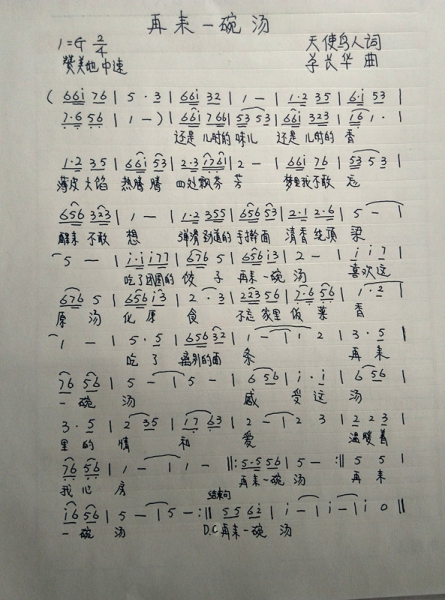 再来一碗汤
1=G 2/4 天使鸟人词
赞美地 中速 李长华 曲
( 66i 76 | 5 · 3 | 66i 32 | 1 — | 1·2 35 | 6·i 53 |
7·6 56 | 1 — ) | 66i 766 | 53 53 | 66i 323 | 16 1 · |
还是 儿时的 味儿 还是 儿时的 香
1·2 35 | 66i 53 | 2·3 i76i | 2 — | 66i 76 | 53 53 |
薄皮 大馅 热腾 腾 四处飘芬 芳 梦里我不敢 忘
656 323 | 1 — | 1·2 355 | 656 53 | 2·1 2·6 | 5 — |
醒来 不敢 想 弹滑劲道的 手擀面 清香绕顶 梁
5 — | i·i i77 | 676 5 | 656 i3 | 2 — | i i 7 |
吃了团圆的 饺 子 再来一碗 汤 喜欢这
676 5 | 656 i3 | 2 · 3 | 2235 6 | 7·6 56 | 1 · 2 |
原 汤 化 原 食 不忘 家里 饭 菜 香
1 — | 5 · 5 | 656 32 | 1 — | 1 2 | 3 · 5 |
吃 了 离别的面 条 再 来
76 56 | 5 — | 5 — | 6 56 | i · i | 6 56 |
一 碗 汤 感 受 这 汤
3 · 5 | 2 35 | 17 63 | 2 — | 2 3 | 2 2 3 |
里 的 情 和 爱 温暖着
76 56 | 1 — | 1 — ||: 5·5 56 | 5 — :|| 5 5 |
我 心 房 再来一碗 汤 再 来
结束句
i6 56 | 5 — | 5 — :|| 55 62 | i — | i — | i 0 ||
一 碗 汤 D.C.再来一碗 汤